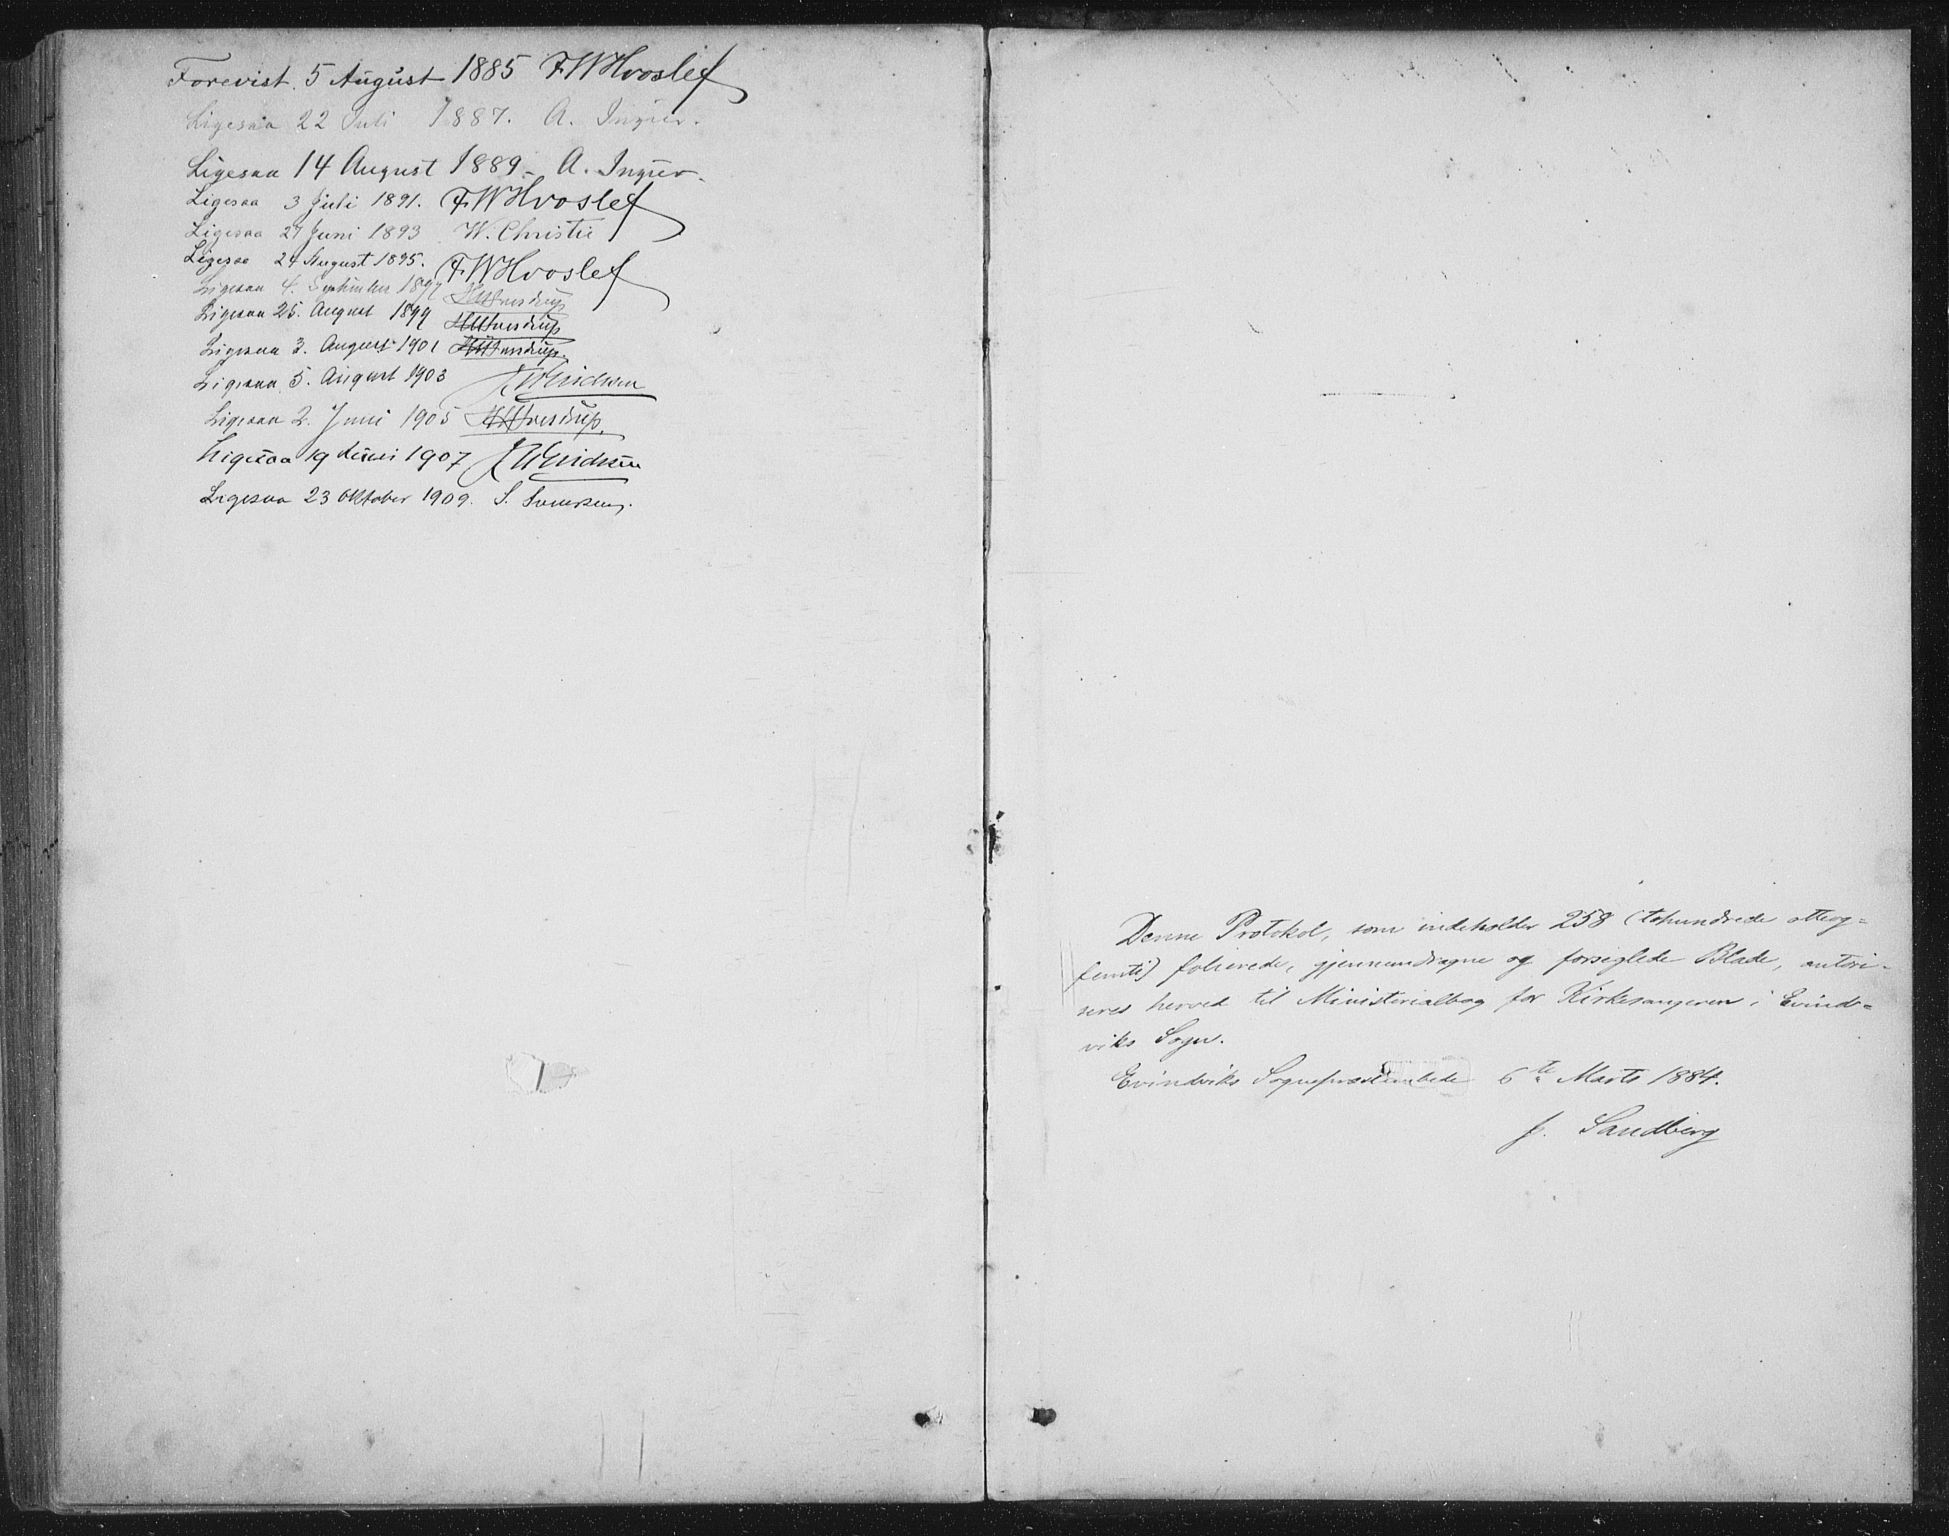 Forevist 5 August 1885 F W Hvoslef
Ligesaa 22 Juli 1887. A. Ingier.
Ligesaa 14 August 1889 - A. Ingier.
Ligesaa 3 Juli 1891. F W Hvoslef
Ligesaa 27 Juni 1893 W. Christie
Ligesaa 24 August 1895. F W Hvoslef
Ligesaa 4. September 1897
Ligesaa 25. August 1899
Ligesaa 3. August 1901
Ligesaa 5. August 1903
Ligesaa 2. Juni 1905
Ligesaa 19 1907
Ligesaa 23 Oktober 1909. S.
Denne Protokol, som indeholder 258 (tohundrede otteog=
femti) folierede, gjennemdragne og forseglede Blade, autori-
seres herved til Ministerialbog for Kirkesangeren i Evind-
viks Sogn.
Evindviks Sognepræstembede 6te Marts 1884.
J. Sandberg